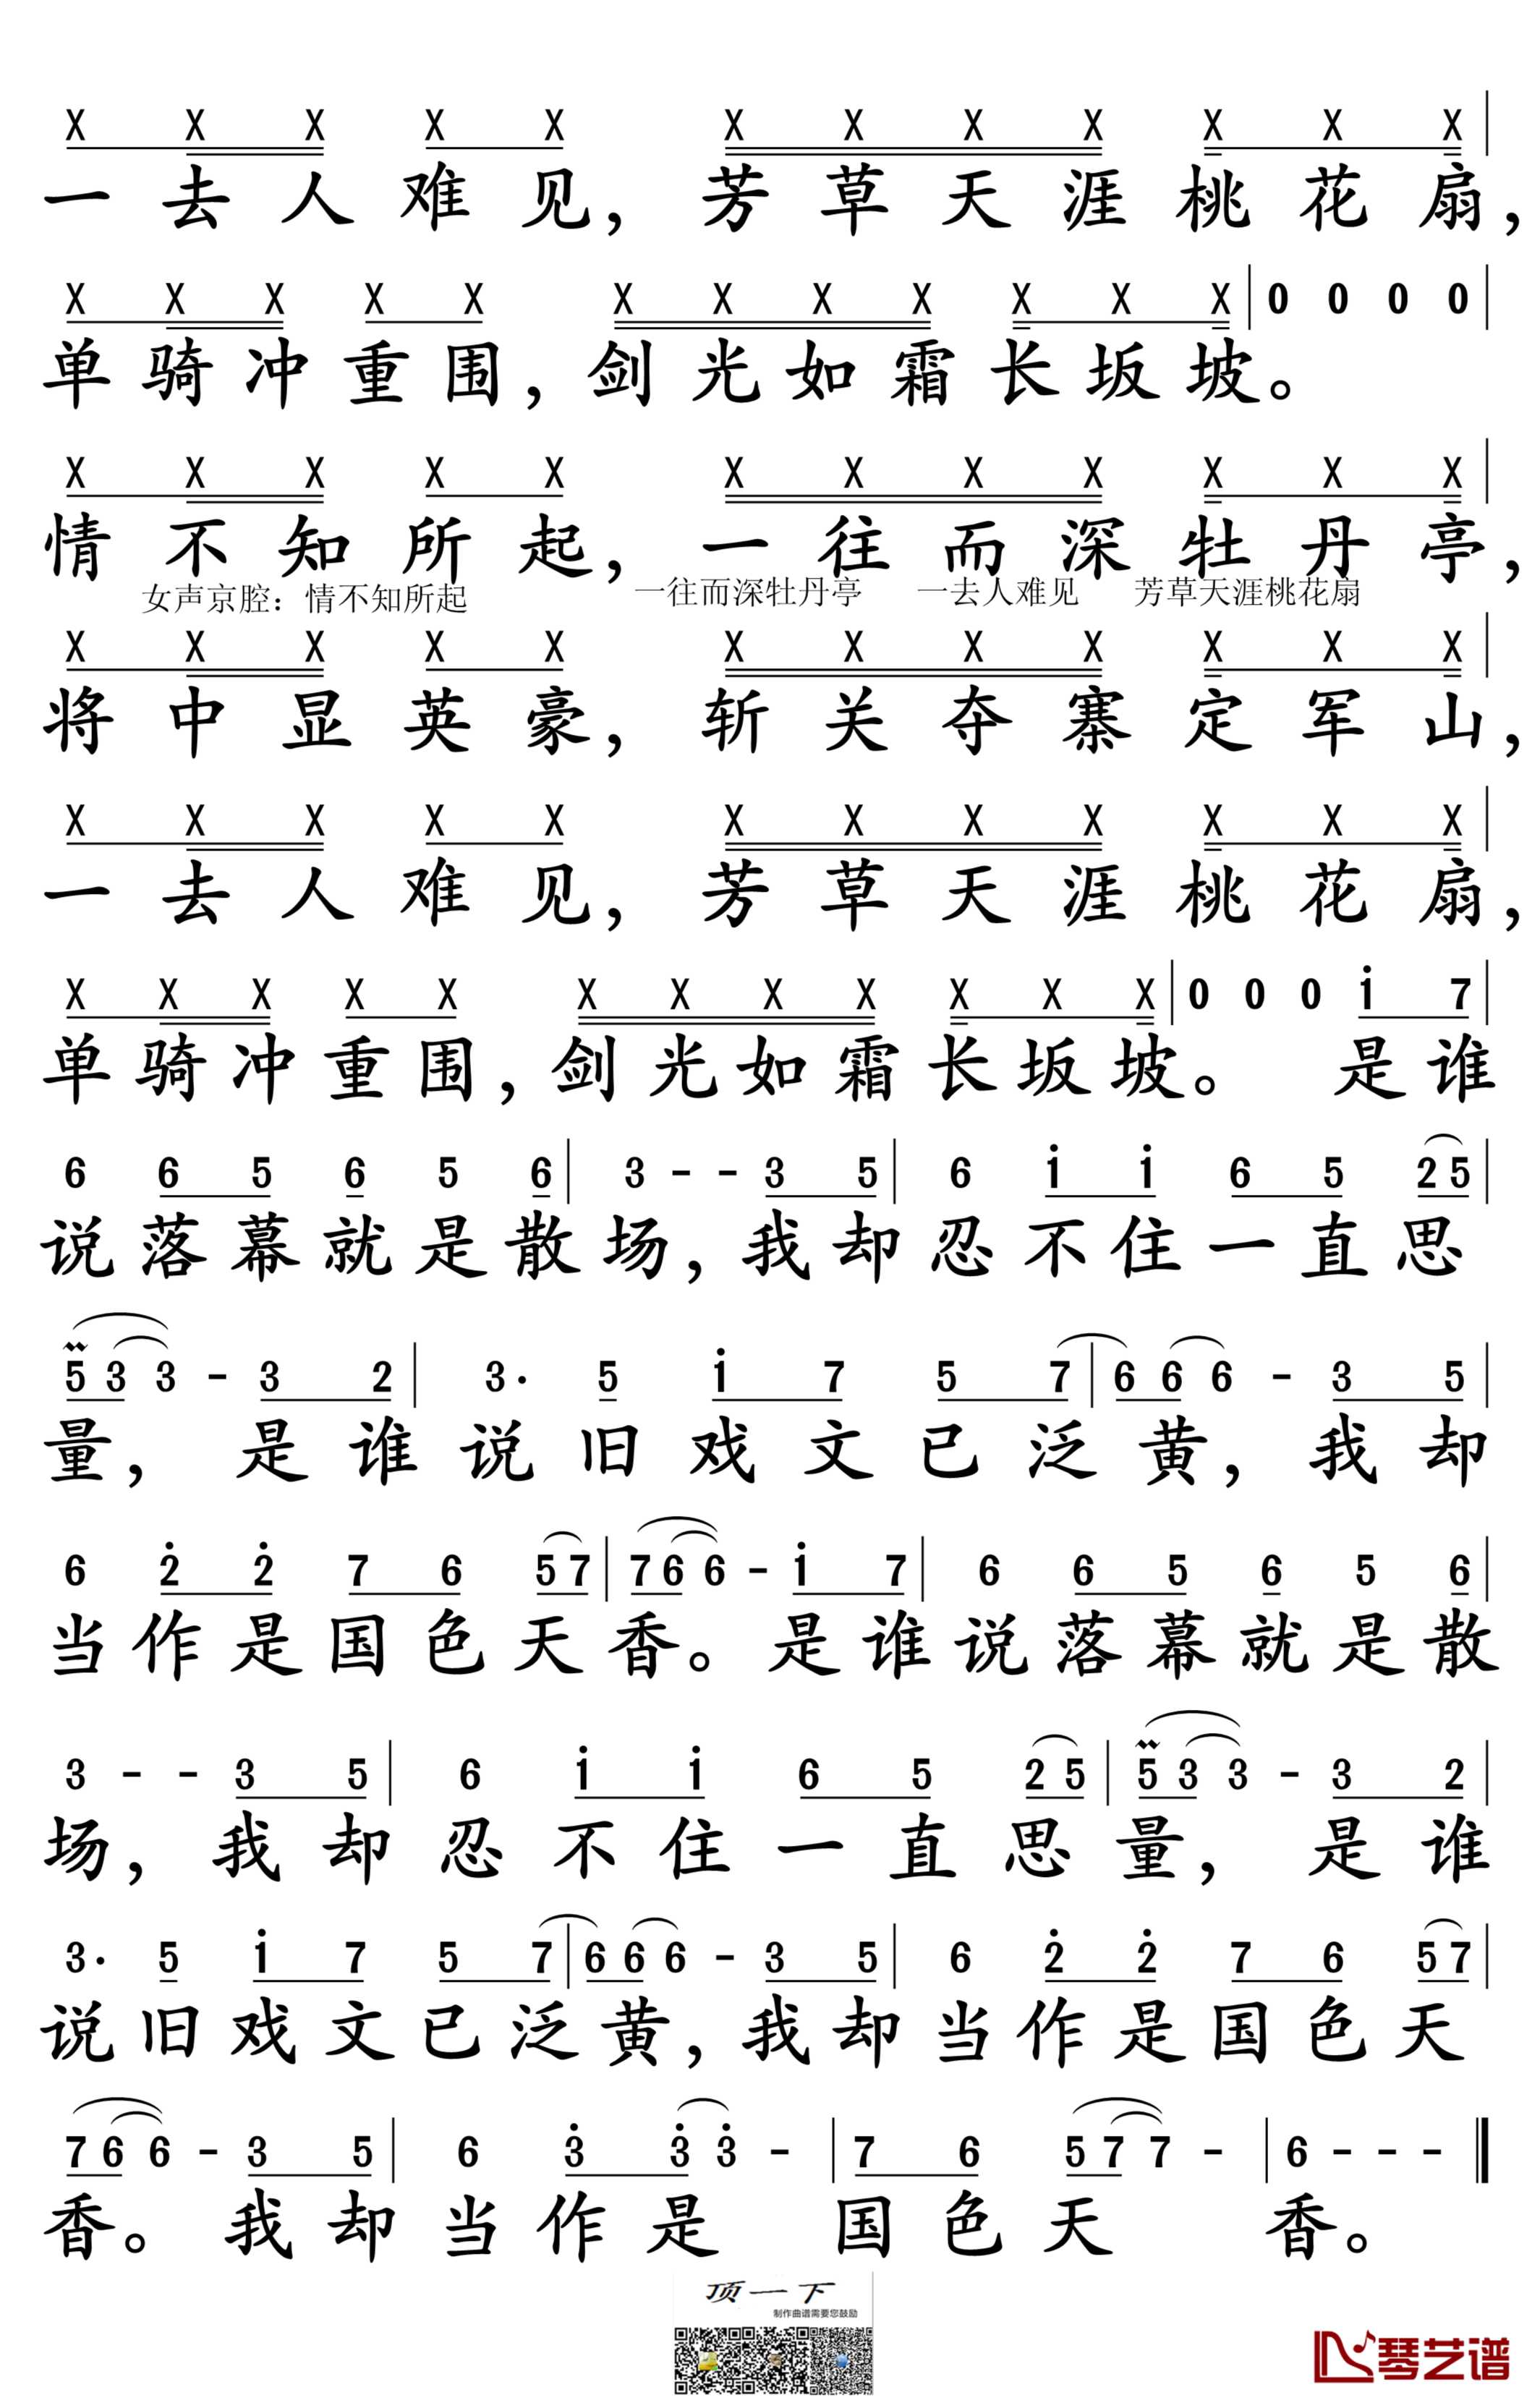 X X X X X X X X X X X X |
一去人难见，芳草天涯桃花扇，
X X X X X X X X X X X X | 0 0 0 0 |
单骑冲重围，剑光如霜长坂坡。
X X X X X X X X X X X X |
情不知所起，一往而深牡丹亭，
女声京腔：情不知所起 一往而深牡丹亭 一去人难见 芳草天涯桃花扇
X X X X X X X X X X X X |
将中显英豪，斩关夺寨定军山，
X X X X X X X X X X X X |
一去人难见，芳草天涯桃花扇，
X X X X X X X X X X X X | 0 0 0 i 7 |
单骑冲重围，剑光如霜长坂坡。 是谁
6 6 5 6 5 6 | 3 - - 3 5 | 6 i i 6 5 2 5 |
说落幕就是散场，我却忍不住一直思
5 3 3 - 3 2 | 3· 5 i 7 5 7 | 6 6 6 - 3 5 |
量，是谁说旧戏文已泛黄，我却
6 2̇ 2̇ 7 6 5 7 | 7 6 6 - i 7 | 6 6 5 6 5 6 |
当作是国色天香。是谁说落幕就是散
3 - - 3 5 | 6 i i 6 5 2 5 | 5 3 3 - 3 2 |
场，我却忍不住一直思量，是谁
3· 5 i 7 5 7 | 6 6 6 - 3 5 | 6 2̇ 2̇ 7 6 5 7 |
说旧戏文已泛黄，我却当作是国色天
7 6 6 - 3 5 | 6 3̇ 3̇ 3̇ - | 7 6 5 7 7 - | 6 - - - ‖
香。我却当作是 国色天 香。
顶一下
制作曲谱需要您鼓励
琴艺谱